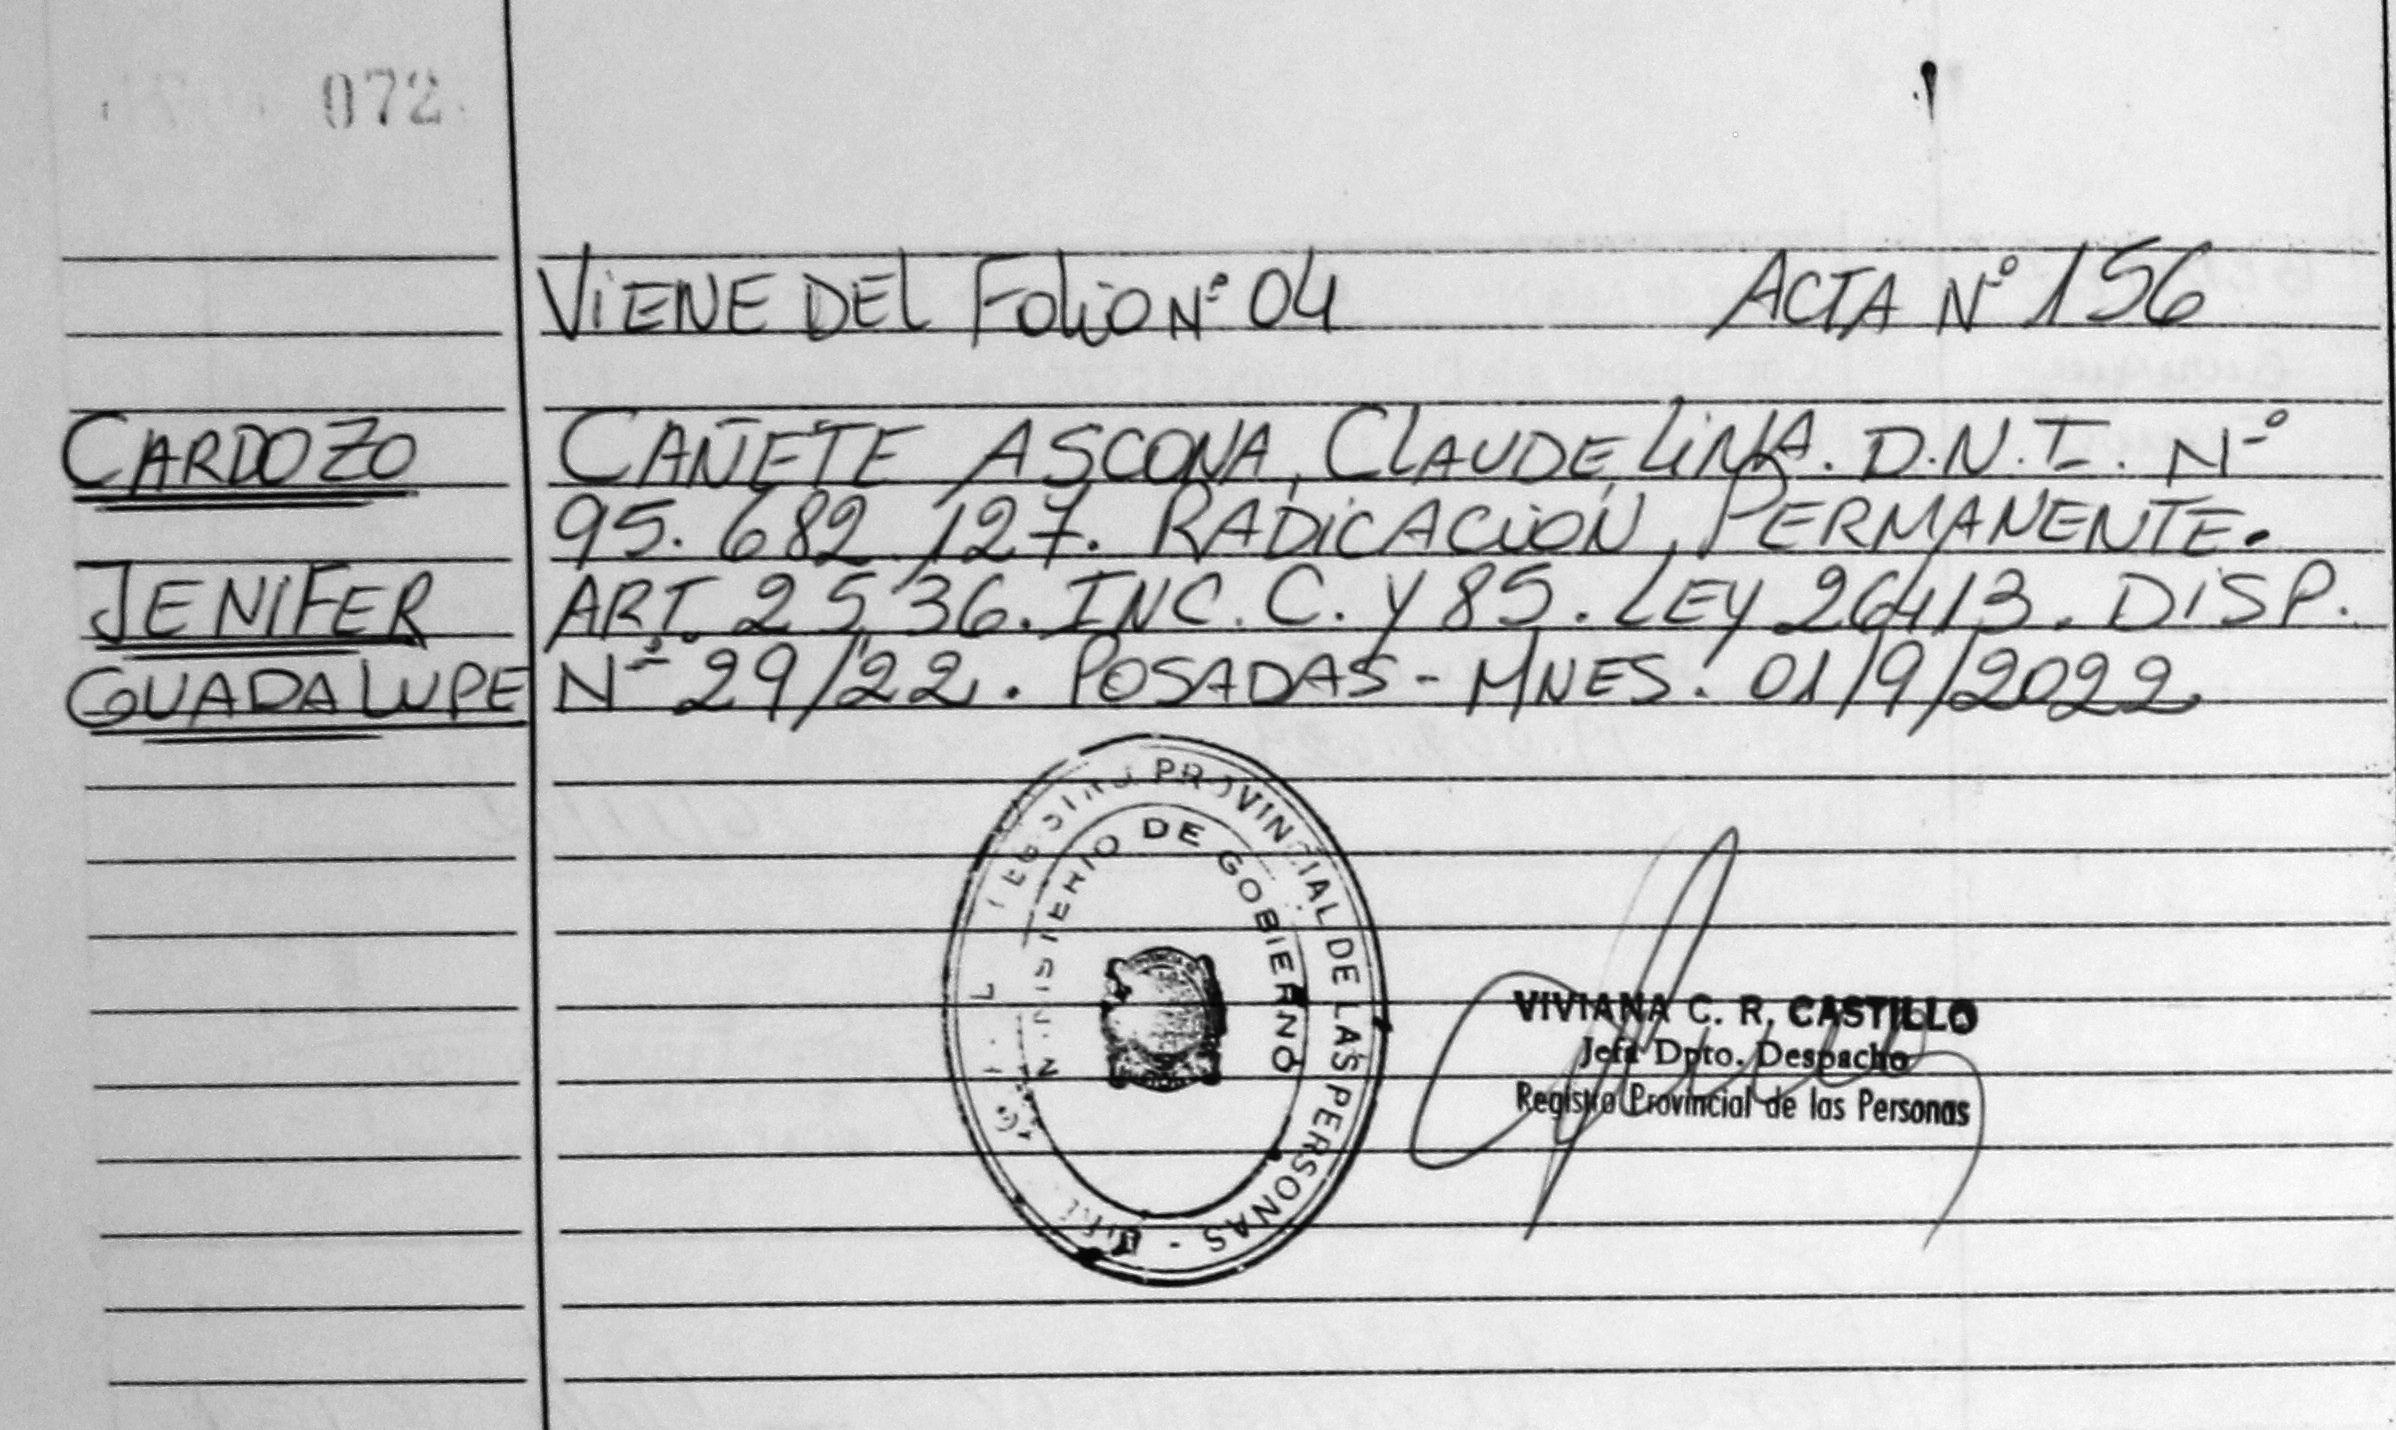 072
VIENE DEL FOLIO Nº 04 ACTA Nº 156
CARDOZO
JENIFER
GUADALUPE
CAÑETE ASCONA, CLAUDELINA. D.N.I. Nº
95.682.127. RADICACIÓN, PERMANENTE.
ART. 25, 36. INC. C. Y 85. LEY 26413. DISP.
Nº 29/22. POSADAS - MNES. 01/9/2022
PROVINCIAL DE LAS PERSONAS -
MINISTERIO DE GOBIERNO
VIVIANA C. R. CASTILLO
Jefa Dpto. Despacho
Registro Provincial de las Personas